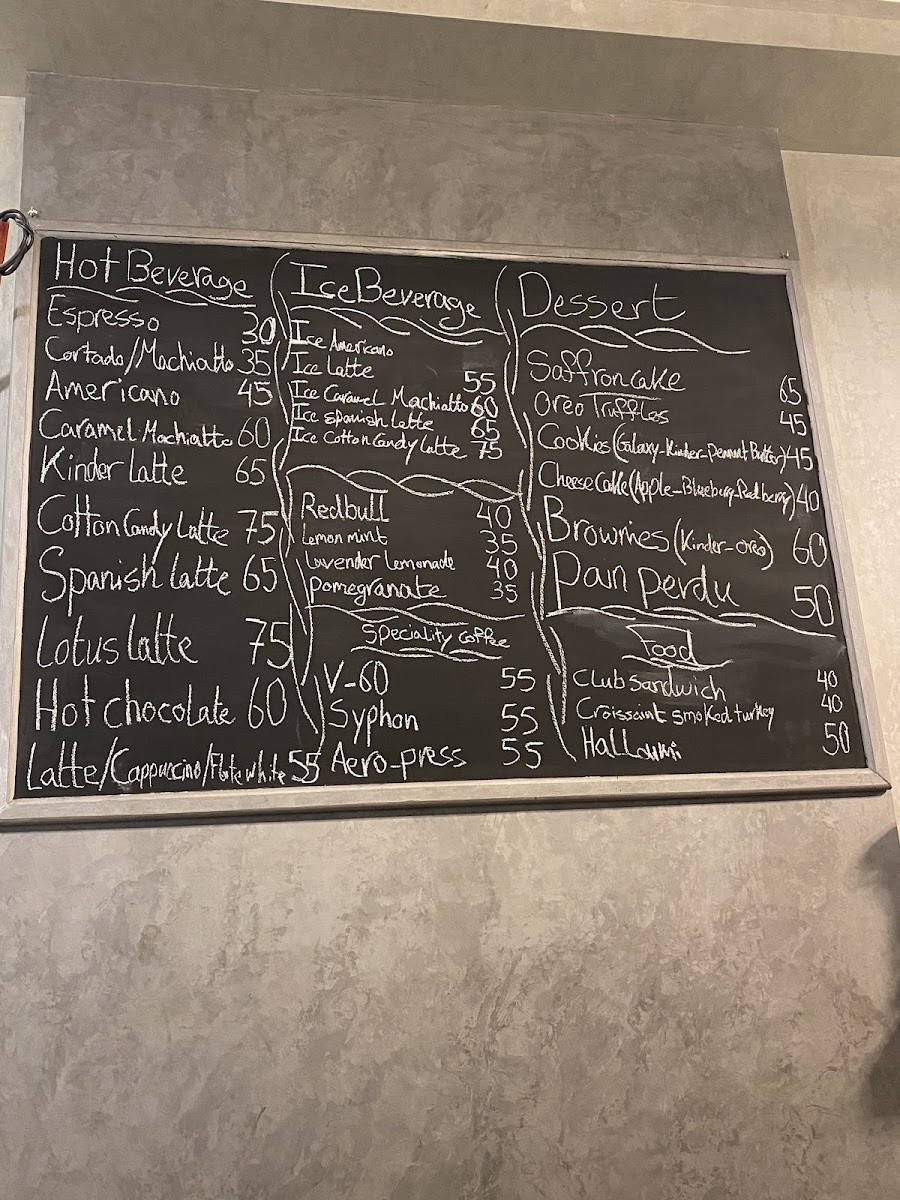 Hot Beverage
Espresso 30
Cortado/Machiatto 35
Americano 45
Caramel Machiatto 60
Kinder latte 65
Cotton Candy Latte 75
Spanish latte 65
Lotus latte 75
Hot chocolate 60
Latte/Cappuccino/Flate white 55
Ice Beverage
Ice Americano
Ice Latte 55
Ice Caramel Machiatto 60
Ice spanish latte 65
Ice Cotton Candy Latte 75
Redbull 40
lemon mint 35
lavender lemonade 40
pomegranate 35
Speciality coffee
V-60 55
Syphon 55
Aero-press 55
Dessert
Saffron cake 65
Oreo Truffles 45
Cookies (Galaxy-Kinder-Peanut Butter) 45
Cheese Cake (Apple-Blueberry-Redberry) 40
Brownies (Kinder-oreo) 60
Pain perdu 50
Food
Club sandwich 40
Croissaint smoked turkey 40
Halloumi 50